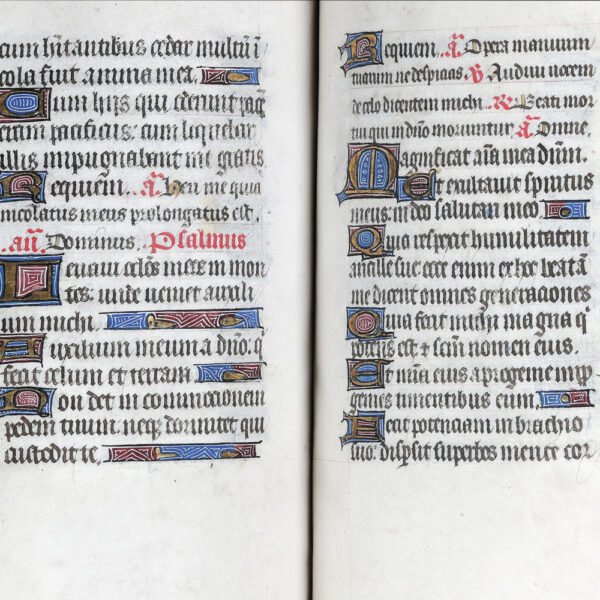 cum hitantibus cedar multū ī
cola fuit anima mea.
Cum hijs qui oderunt pacē
eram pacificus: cum loquebar
illis impugnabant me gratis
Requiem. A. Heu me quia
incolatus meus prolongatus est.
añ. Dominus. Psalmus
Leuaui oculos meos in mon
tes: unde ueniet auxili
um michi.
Auxilium meum a dño: q̄
fecit celum et terram.
Non det in commocionem
pedem tuum: neq; dormitet qui
custodit te.
Requiem. A. Opera manuum
tuarum ne despicias. V. Audiui uocem
de celo dicentem michi. R. Beati mor
tui qui in dño moriuntur A. Omne.
Magnificat aīa mea dñm.
Et exultauit spiritus
meus: in deo salutari meo
Quia respexit humilitatem
ancille sue: ecce enim ex hoc beatā
me dicent omnes generaciones
Quia fecit michi magna q̄
potens est & scm̄ nomen eius.
Et mīa eius a progenie in p̄
genies timentibus eum.
Fecit potenciam in brachio
suo: dispsit superbos mente cor